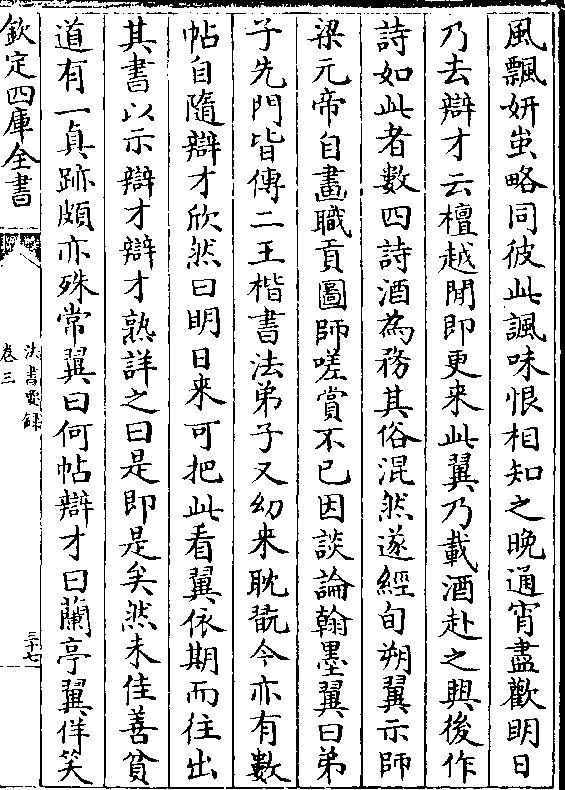 風飄妍蚩略同彼此諷味恨相知之晚通宵盡歡明日
乃去辯才云檀越閒即更来此翼乃載酒赴之興後作
詩如此者數四詩酒為務其俗混然遂經旬朔翼示師
梁元帝自畫職貢圖師嗟賞不已因談論翰墨翼曰弟
子先門皆傳二王楷書法弟子又幼来耽翫今亦有數
帖自隨辯才欣然曰明日来可把此看翼依期而往出
其書以示辯才辯才熟詳之曰是即是矣然未佳善貧
道有一真跡頗亦殊常翼曰何帖辯才曰蘭亭翼佯笑
欽定四庫全書
法書要録
卷三
三十七